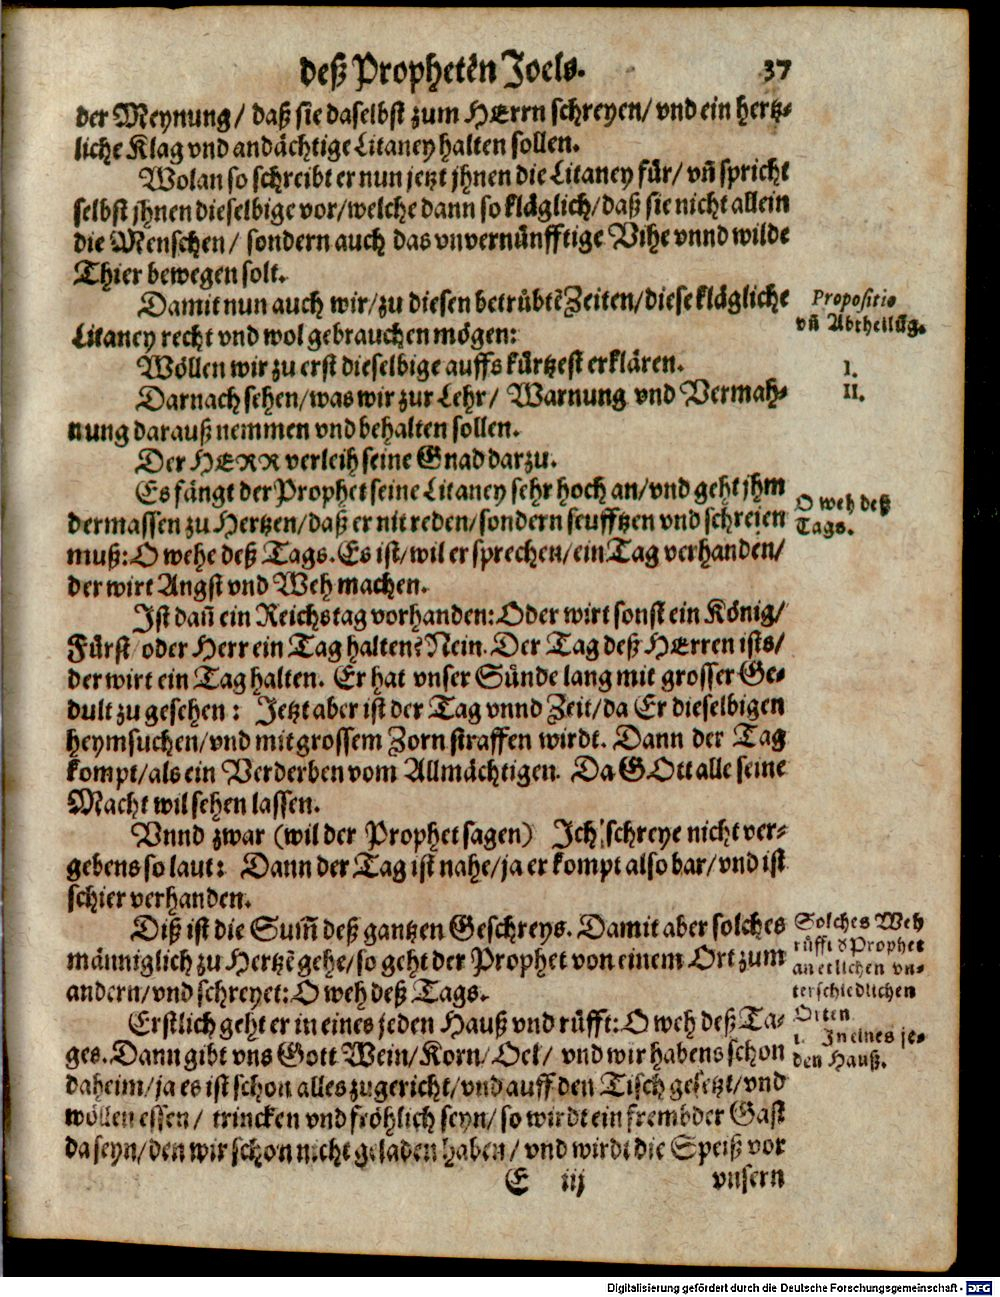 deß Propheten Joels. 37
der Meynung/ daß sie daselbst zum HErrn schreyen/ vnd ein hertz-
liche Klag vnd andächtige Litaney halten sollen.
Wolan so schreibt er nun jetzt jhnen die Litaney für/ vñ spricht
selbst jhnen dieselbige vor/ welche dann so kläglich/ daß sie nicht allein
die Menschen/ sondern auch das vnvernünfftige Vihe vnnd wilde
Thier bewegen solt.
Damit nun auch wir/ zu diesen betrübtẽ Zeiten/ diese klägliche
Litaney recht vnd wol gebrauchen mögen:
Propositio
vñ Abtheilũg.
Wöllen wir zu erst dieselbige auffs kürtzest erklären.
I.
Darnach sehen/ was wir zur Lehr/ Warnung vnd Vermah-
II.
nung darauß nemmen vnd behalten sollen.
Der HERR verleih seine Gnad darzu.
Es fängt der Prophet seine Litaney sehr hoch an/ vnd geht jhm
dermassen zu Hertzen/ daß er nit reden/ sondern seufftzen vnd schreien
muß: O wehe deß Tags. Es ist/ wil er sprechen/ ein Tag verhanden/
der wirt Angst vnd Weh machen.
O weh deß
Tags.
Ist dañ ein Reichstag vorhanden: Oder wirt sonst ein König/
Fürst/ oder Herr ein Tag halten? Nein. Der Tag deß HErren ists/
der wirt ein Tag halten. Er hat vnser Sünde lang mit grosser Ge-
dult zu gesehen: Jetzt aber ist der Tag vnnd Zeit/ da Er dieselbigen
heymsuchen/ vnd mit grossem Zorn straffen wirdt. Dann der Tag
kompt/ als ein Verderben vom Allmächtigen. Da GOtt alle seine
Macht wil sehen lassen.
Vnnd zwar (wil der Prophet sagen) Ich schreye nicht ver-
gebens so laut: Dann der Tag ist nahe/ ja er kompt also bar/ vnd ist
schier verhanden.
Diß ist die Sum̃ deß gantzen Geschreys. Damit aber solches
männiglich zu Hertzẽ gehe/ so geht der Prophet von einem Ort zum
andern/ vnd schreyet: O weh deß Tags.
Solches Weh
rüfft d Prophet
an etlichen vn-
terschiedlichen
Orten
Erstlich geht er in eines jeden Hauß vnd rüfft: O weh deß Ta-
ges. Dann gibt vns Gott Wein/ Korn/ Oel/ vnd wir habens schon
daheim/ ja es ist schon alles zugericht/ vnd auff den Tisch gesetzt/ vnd
wöllen essen/ trincken vnd fröhlich seyn/ so wirdt ein frembder Gast
da seyn/ den wir schon nicht geladen haben/ vnd wirdt die Speiß vor
1. In eines je-
den Hauß.
E iij vnsern
Digitalisierung gefördert durch die Deutsche Forschungsgemeinschaft - DFG